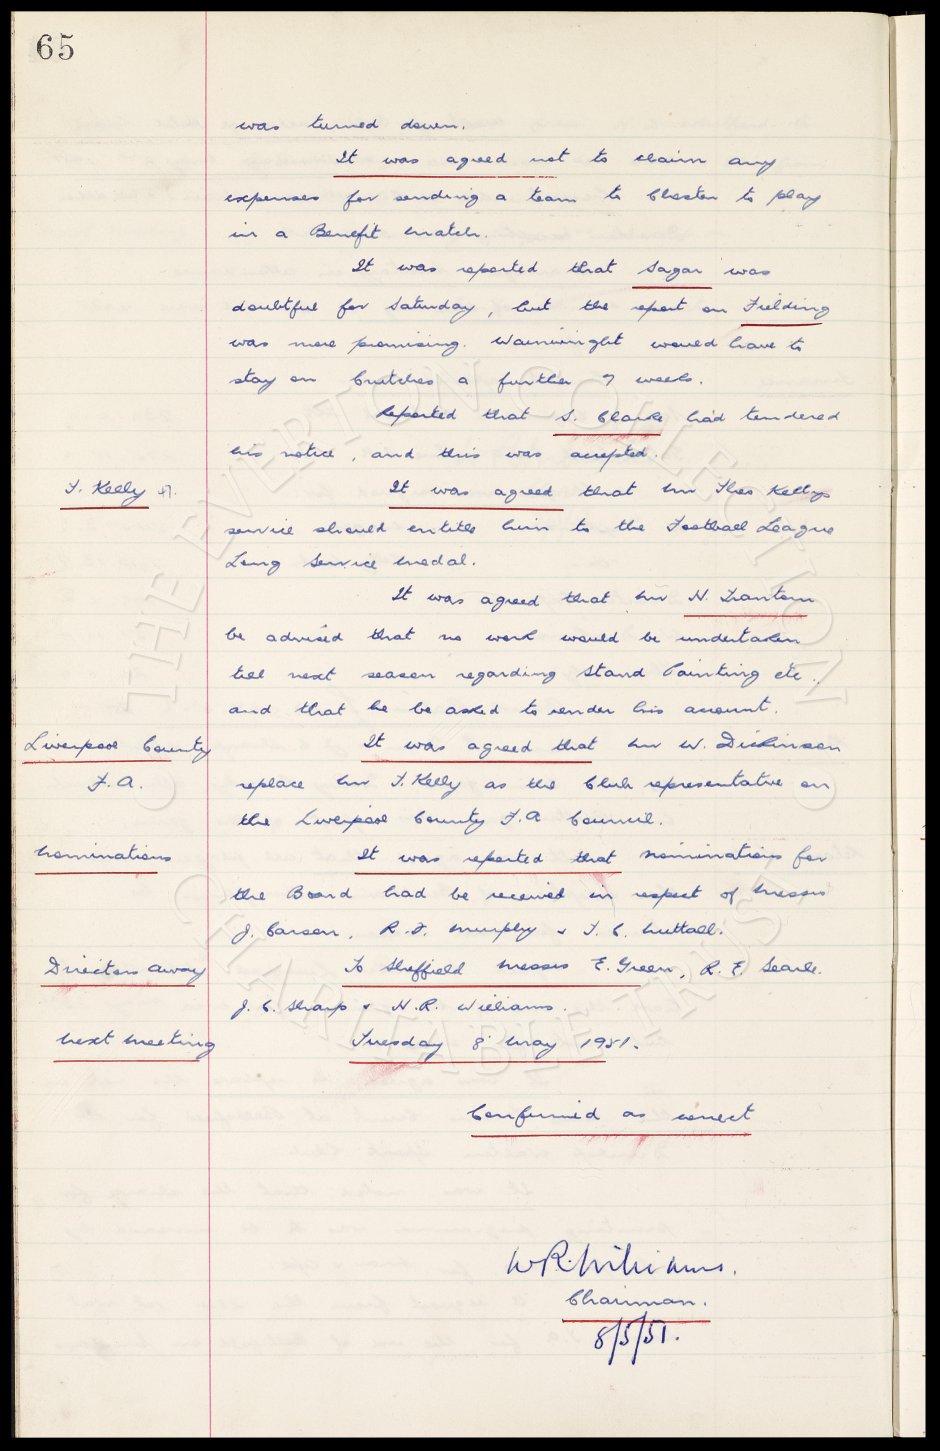 65
was turned down.
It was agreed not to claim any
expenses for sending a team to Chester to play
in a Benefit match.
It was reported that Sagar was
doubtful for Saturday, but the report on Fielding
was more promising. Wainwright would have to
stay on Crutches a further 7 weeks.
Reported that S. Clarke had tendered
his notice, and this was accepted.
T. Kelly
It was agreed that Mr Theo Kellys
service should entitle him to the Football League
Long Service medal.
It was agreed that Mr H. Trantom
be advised that no work would be undertaken
till next season regarding Stand Painting etc.,
and that he be asked to render his account.
Liverpool County
F.A.
It was agreed that Mr W. Dickinson
replace Mr T. Kelly as the Club representative on
the Liverpool County F.A Council.
Nominations
It was reported that nominations for
the Board had be received in respect of Messrs
J. Carson, R. F. Murphy & T. C. Nuttall.
Directors away
To Sheffield Messrs E. Green, R. E. Searle.
J. C. Sharp & N.R. Williams.
Next meeting
Tuesday 8 May 1951.
Confirmed as correct
W R. Williams.
Chairman.
8/5/51.
© THE EVERTON COLLECTION
CHARITABLE TRUST